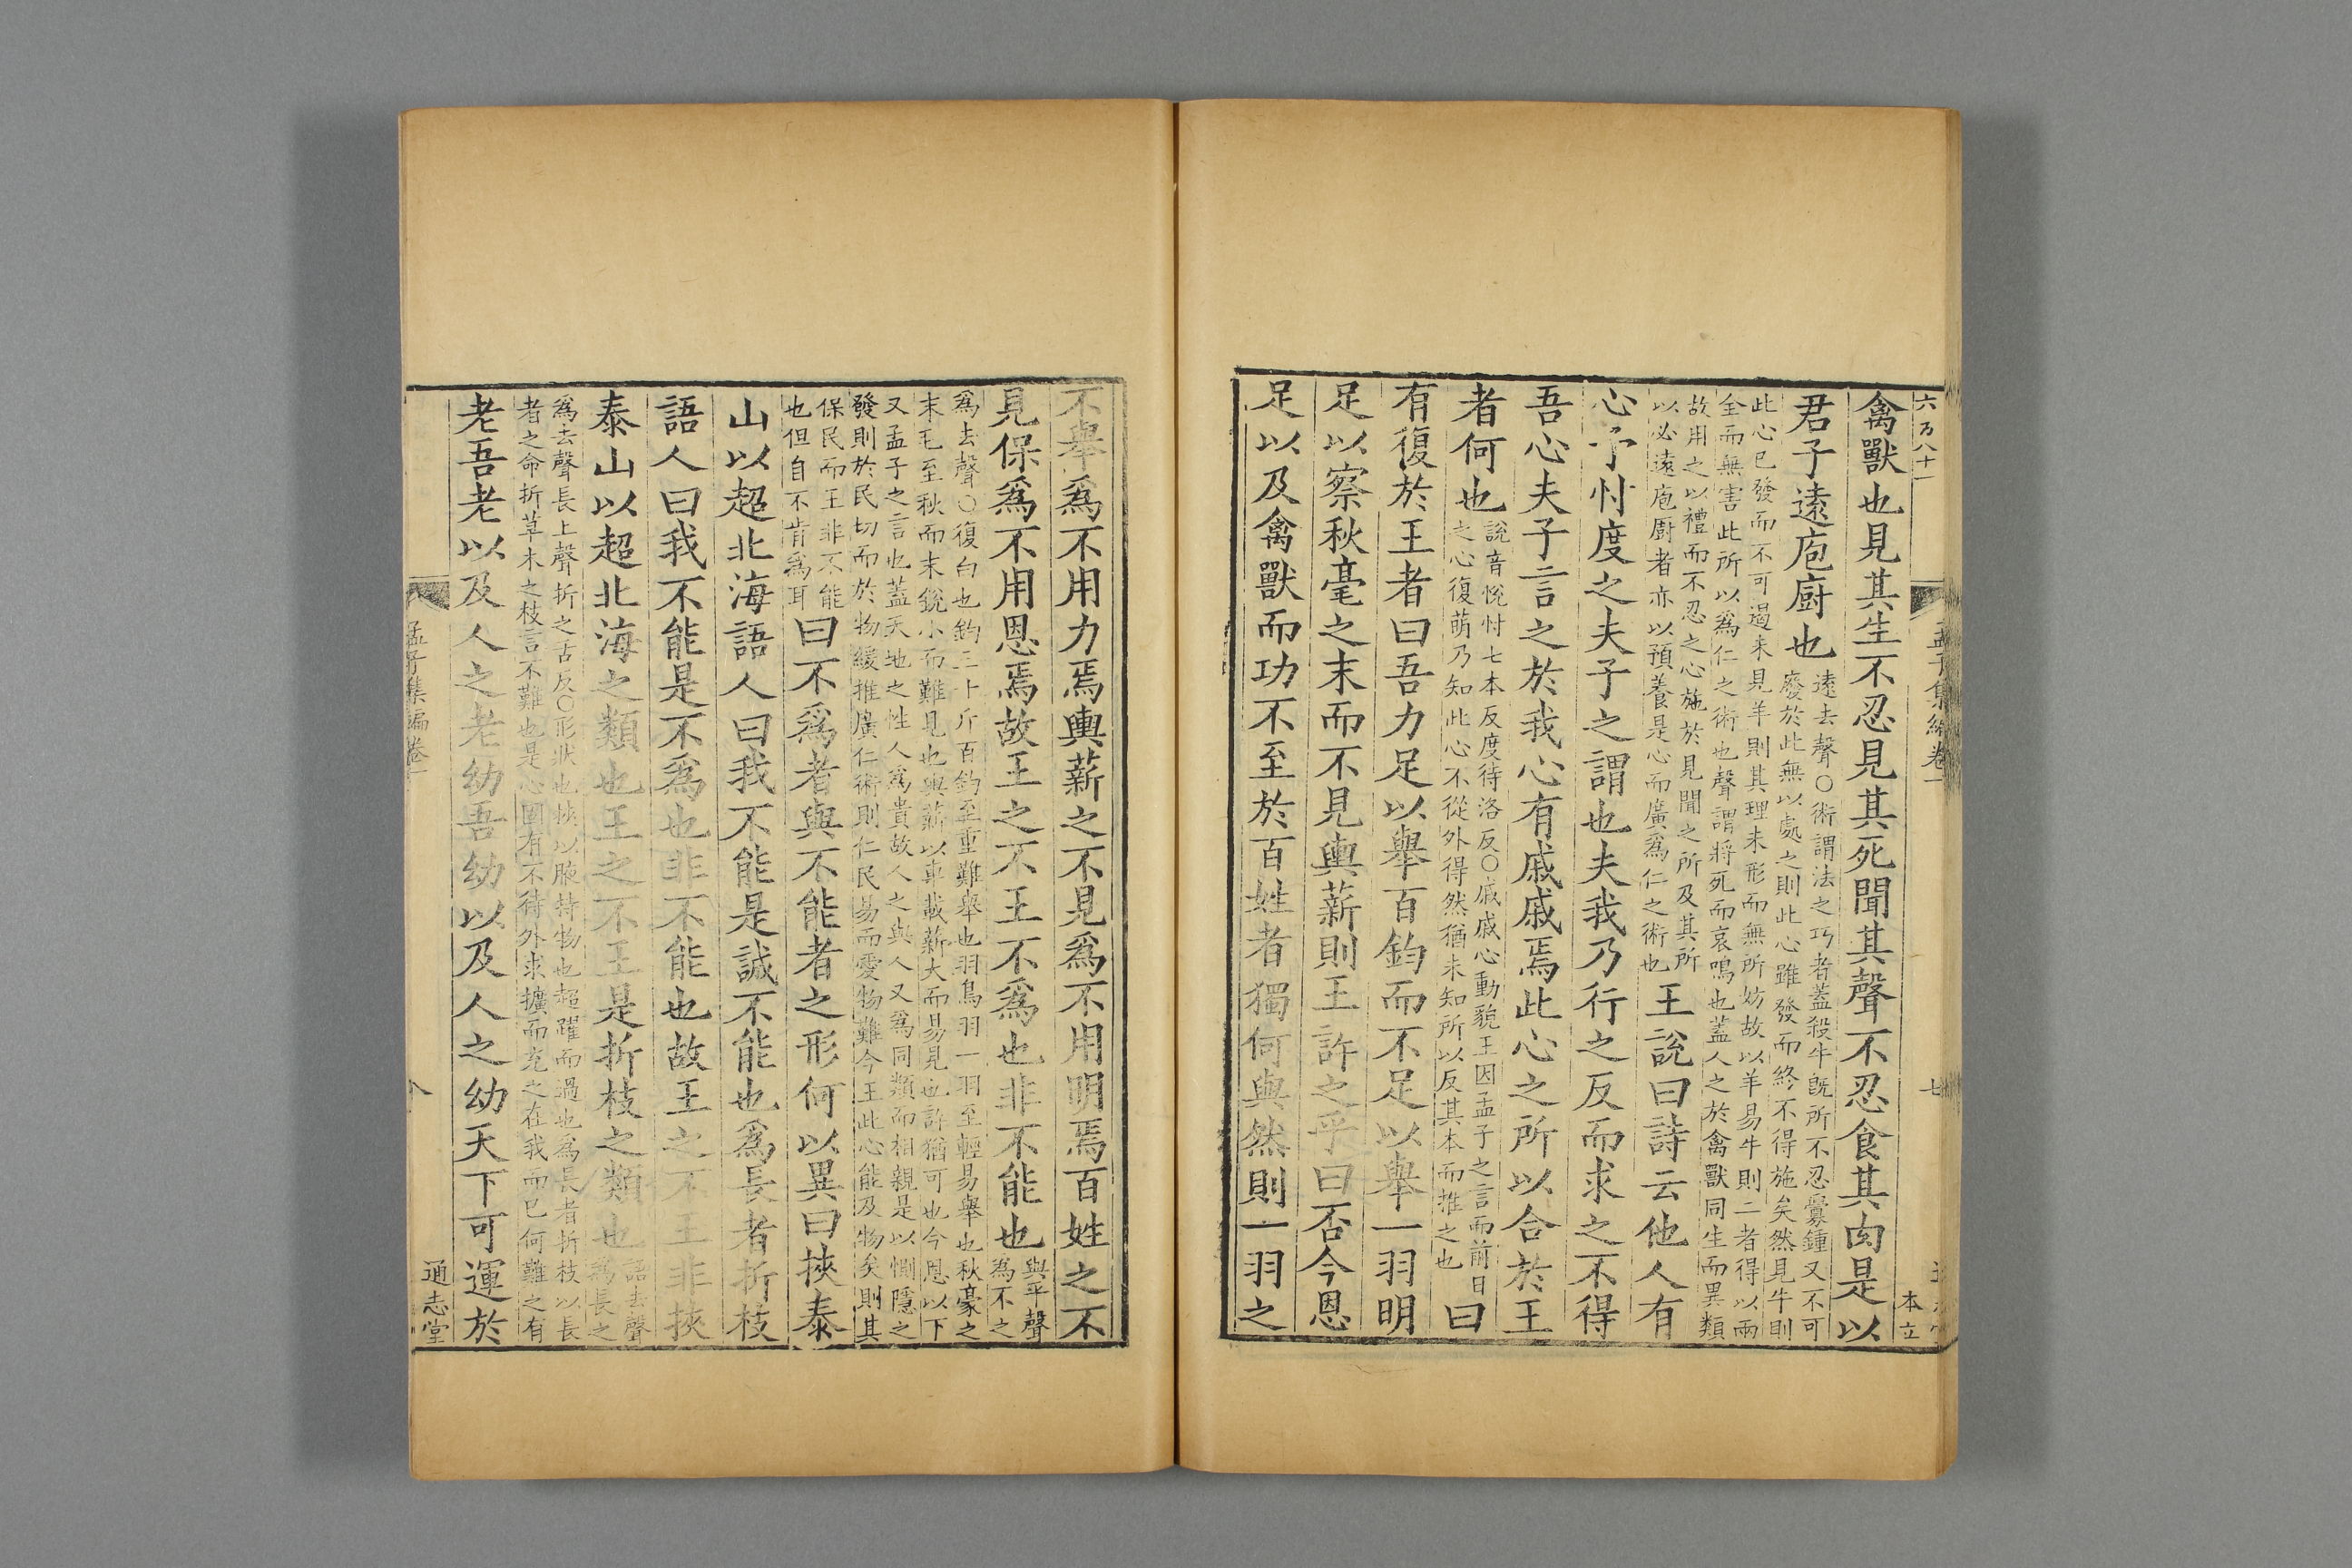 六百八十一
孟子集編卷一
七
本立
禽獸也見其生不忍見其死聞其聲不忍食其肉是以
君子遠庖廚也
遠去聲○術謂法之巧者蓋殺牛既所不忍釁鐘又不可
廢於此無以處之則此心雖發而終不得施矣然見牛則
此心已發而不可遏未見羊則其理未形而無所妨故以羊易牛則二者得以兩
全而無害此所以為仁之術也聲謂將死而哀鳴也蓋人之於禽獸同生而異類
故用之以禮而不忍之心施於見聞之所及其所
以必遠庖廚者亦以預養是心而廣為仁之術也
王說曰詩云他人有
心予忖度之夫子之謂也夫我乃行之反而求之不得
吾心夫子言之於我心有戚戚焉此心之所以合於王
者何也
說音悅忖七本反度待洛反○戚戚心動貌王因孟子之言而前日
之心復萌乃知此心不從外得然猶未知所以反其本而推之也
曰
有復於王者曰吾力足以舉百鈞而不足以舉一羽明
足以察秋毫之末而不見輿薪則王許之乎曰否今恩
足以及禽獸而功不至於百姓者獨何與然則一羽之
不舉為不用力焉輿薪之不見為不用明焉百姓之不
見保為不用恩焉故王之不王不為也非不能也
與平聲
為不之
為去聲○復白也鈞三十斤百鈞至重難舉也羽鳥羽一羽至輕易舉也秋豪之
末毛至秋而末銳小而難見也輿薪以車載薪大而易見也許猶可也今恩以下
又孟子之言也蓋天地之性人為貴故人之與人又為同類而相親是以惻隱之
發則於民切而於物緩推廣仁術則仁民易而愛物難今王此心能及物矣則其
保民而王非不能
也但自不肯為耳
曰不為者與不能者之形何以異曰挾泰
山以超北海語人曰我不能是誠不能也為長者折枝
語人曰我不能是不為也非不能也故王之不王非挾
泰山以超北海之類也王之不王是折枝之類也
語去聲
為長之
為去聲長上聲折之舌反○形狀也挾以腋持物也超躍而過也為長者折枝以長
者之命折草木之枝言不難也是心固有不待外求擴而充之在我而已何難之有
老吾老以及人之老幼吾幼以及人之幼天下可運於
孟子集編卷一
八
通志堂